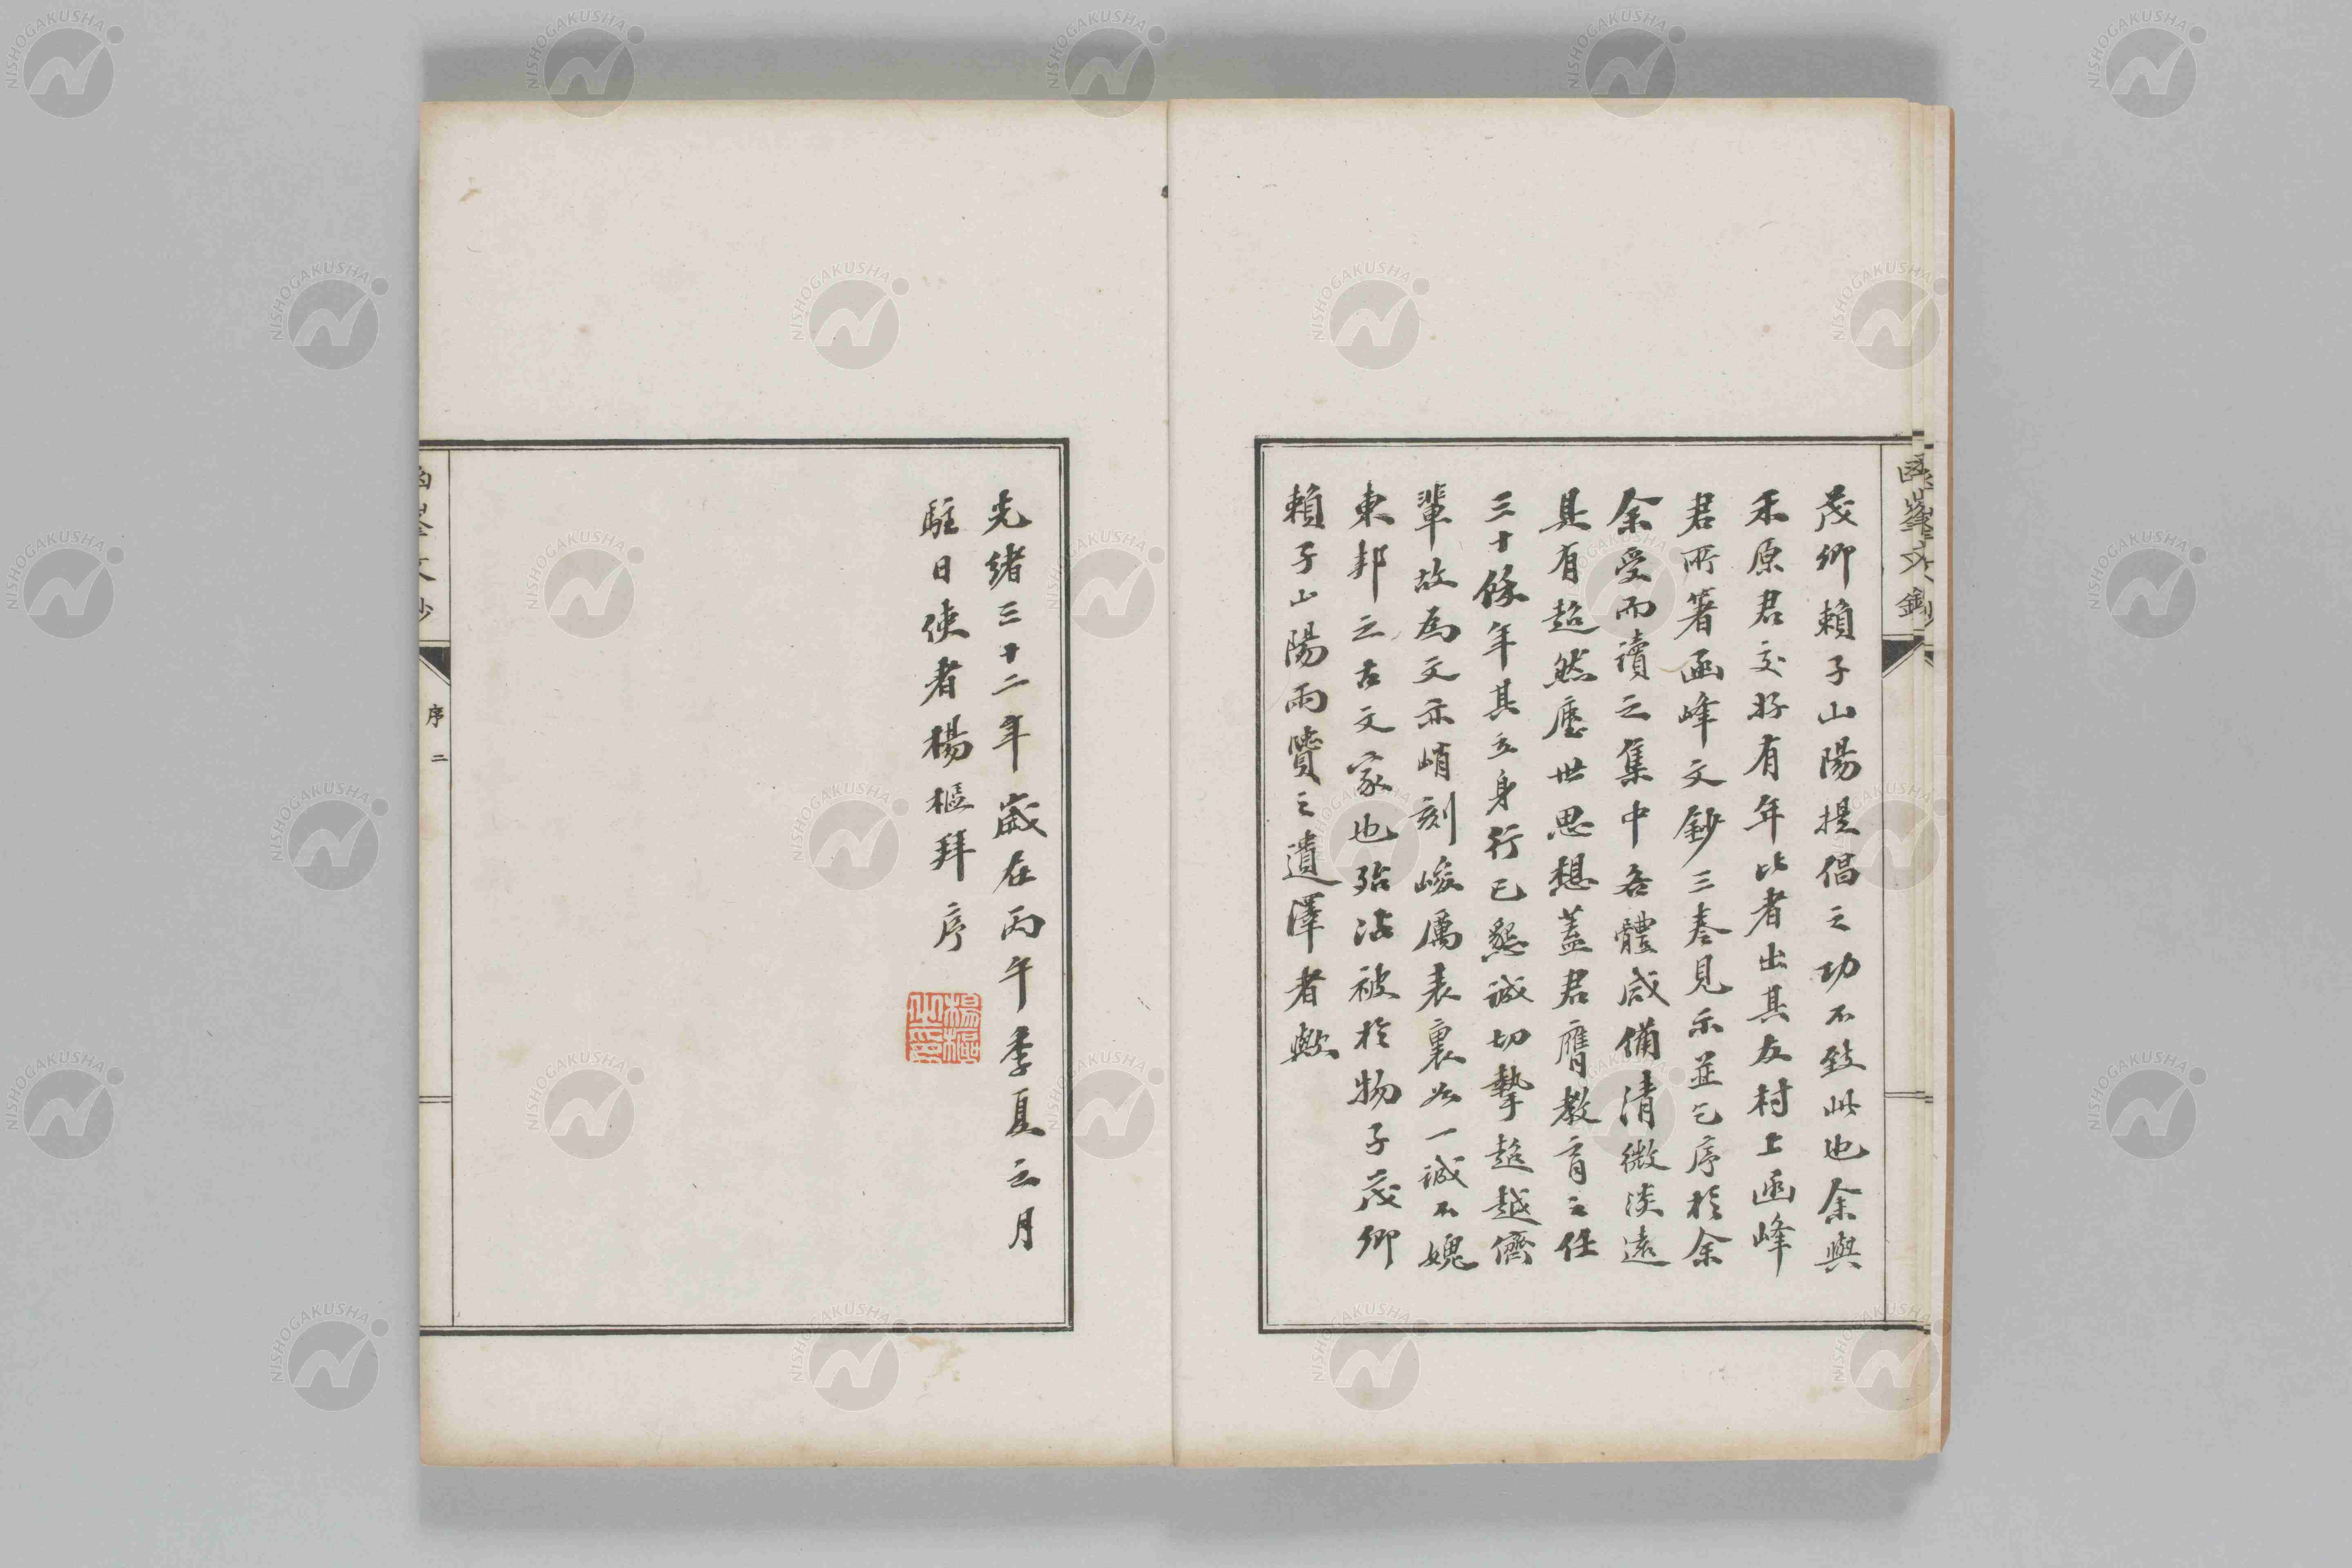 茂卿賴子山陽提倡之功不致此也余與
禾原君交好有年比者出其友村上函峰
君所著函峰文鈔三卷見示並乞序於余
余受而讀之集中各體咸備清微淡遠
具有超然塵世思想蓋君膺教育之任
三十餘年其立身行己懇誠切摯超越儕
輩故為文亦峭刻峻厲表裏如一誠不媿
東邦之古文家也殆沾被於物子茂卿
賴子山陽兩贒之遺澤者歟
光緒三十二年歲在丙午季夏之月
駐日使者楊樞拜序
楊樞之印
函峯文鈔
序 二
NISHOGAKUSHA